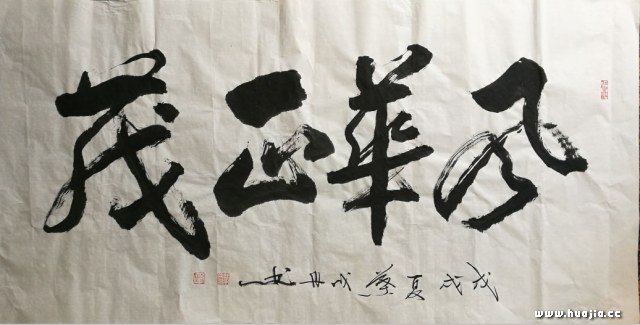 风華正茂
戊戌夏
www.huajia.cc